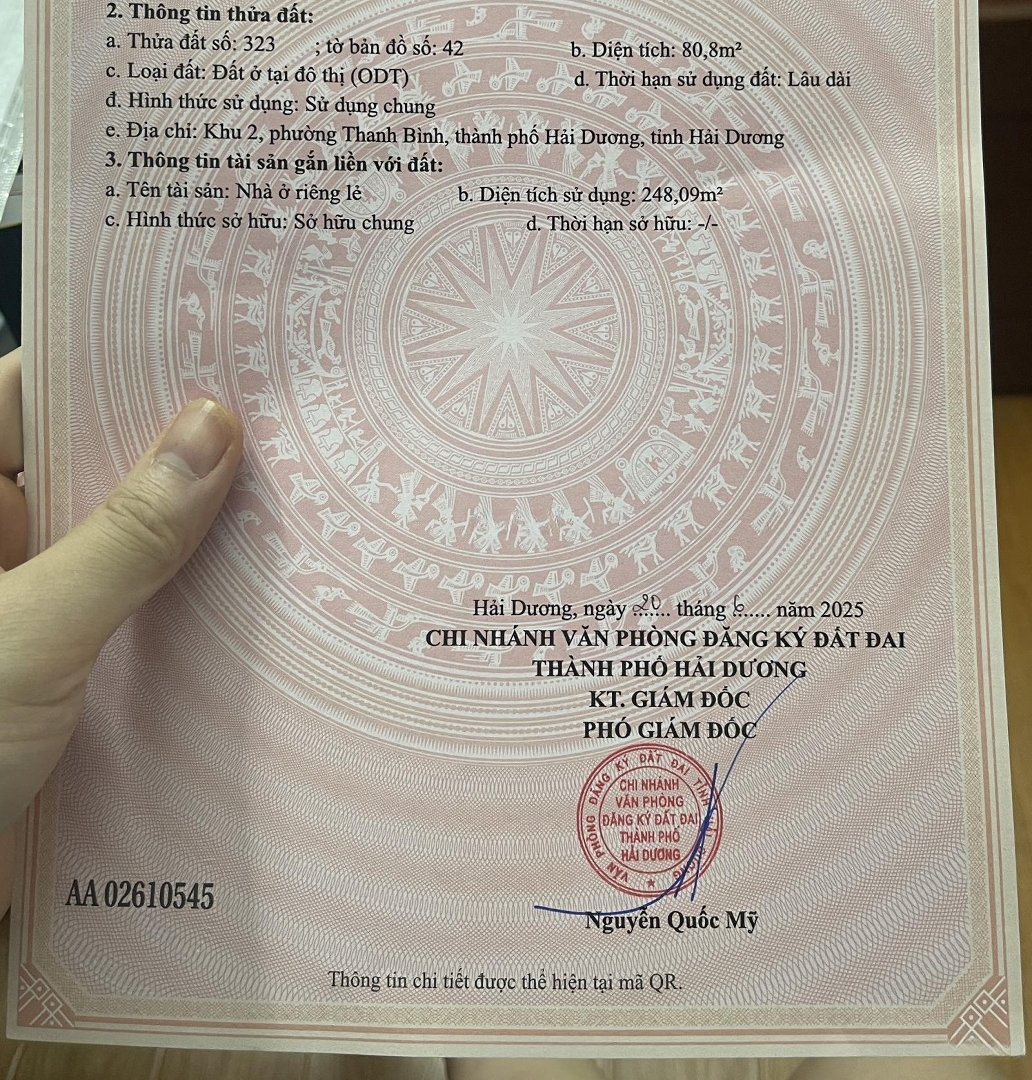 2. Thông tin thửa đất:
a. Thửa đất số: 323 ; tờ bản đồ số: 42 b. Diện tích: 80,8m²
c. Loại đất: Đất ở tại đô thị (ODT) d. Thời hạn sử dụng đất: Lâu dài
đ. Hình thức sử dụng: Sử dụng chung
e. Địa chỉ: Khu 2, phường Thanh Bình, thành phố Hải Dương, tỉnh Hải Dương
3. Thông tin tài sản gắn liền với đất:
a. Tên tài sản: Nhà ở riêng lẻ b. Diện tích sử dụng: 248,09m²
c. Hình thức sở hữu: Sở hữu chung d. Thời hạn sở hữu: -/-
Hải Dương, ngày 20 tháng 6 năm 2025
CHI NHÁNH VĂN PHÒNG ĐĂNG KÝ ĐẤT ĐAI
THÀNH PHỐ HẢI DƯƠNG
KT. GIÁM ĐỐC
PHÓ GIÁM ĐỐC
VĂN PHÒNG ĐĂNG KÝ ĐẤT ĐAI TỈNH
CHI NHÁNH
VĂN PHÒNG
ĐĂNG KÝ ĐẤT ĐAI
THÀNH PHỐ
HẢI DƯƠNG
AA 02610545
Nguyễn Quốc Mỹ
Thông tin chi tiết được thể hiện tại mã QR.